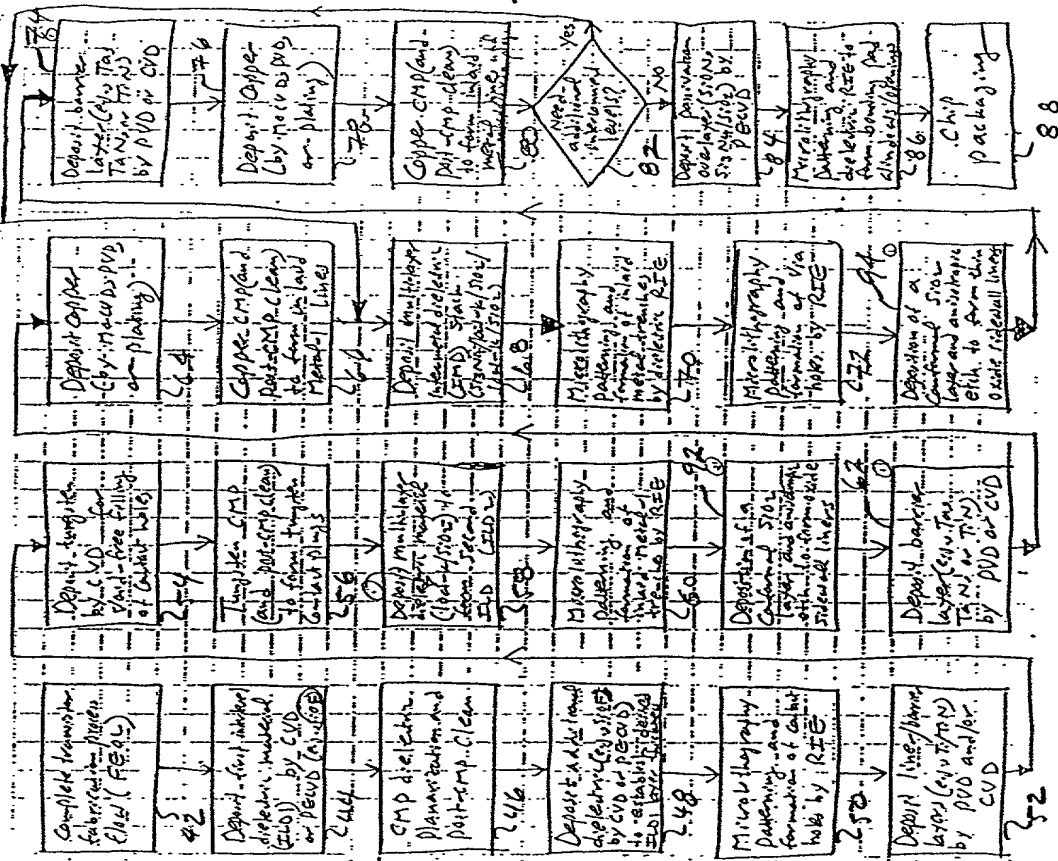 Complete transistor
fabrication process
flow (FEOL)
42
Deposit first interlevel
dielectric material
(ILD1) by CVD
or PECVD
44
CMP dielectric
planarization and
post-CMP clean
46
Deposit additional
dielectric
by CVD or PECVD)
to establish desired
48
Microlithography
patterning and
formation of contact
holes by RIE
50
Deposit liner/barrier
layers (e.g. Ti/TiN)
by PVD and/or
CVD
52
Deposit tungsten
by CVD for
void-free filling
of contact holes
54
Tungsten CMP
(and post-CMP clean)
to form tungsten
contact plugs
56
Deposit multilayer
dielectric material
second
ILD (ILD2)
58
Microlithography
patterning and
formation of
inlaid metal
trenches by RIE
60
92
Deposition of a
conformal SiO2
layer and anisotropic
etch to form oxide
sidewall liners
62
Deposit barrier
layer (e.g. Ta,
TaN, or TiN)
by PVD or CVD
Deposit Copper
(by MOCVD, PVD,
or plating)
64
Copper CMP (and
post-CMP clean)
to form inlaid
metal 1 lines
66
Deposit multilayer
intermetal dielectric
(IMD) stack
68
Microlithography
patterning and
formation of inlaid
metal trenches
by dielectric RIE
70
Microlithography
patterning and
formation of via
holes by RIE
72
94
Deposition of a
conformal SiO2
layer and anisotropic
etch to form thin
oxide sidewall liners
Deposit barrier
layer (e.g. Ta,
TaN, or TiN)
by PVD or CVD
76
Deposit Copper
(by MOCVD, PVD,
or plating)
78
Copper CMP (and
post-CMP clean)
to form inlaid
metal lines and
80
Need
additional
interconnect
levels?
Yes
No
82
Deposit passivation
overlayer (SiON,
by
PECVD
84
Microlithography
patterning and
dielectric RIE to
form bonding pad
windows/openings
86
Chip
packaging
88